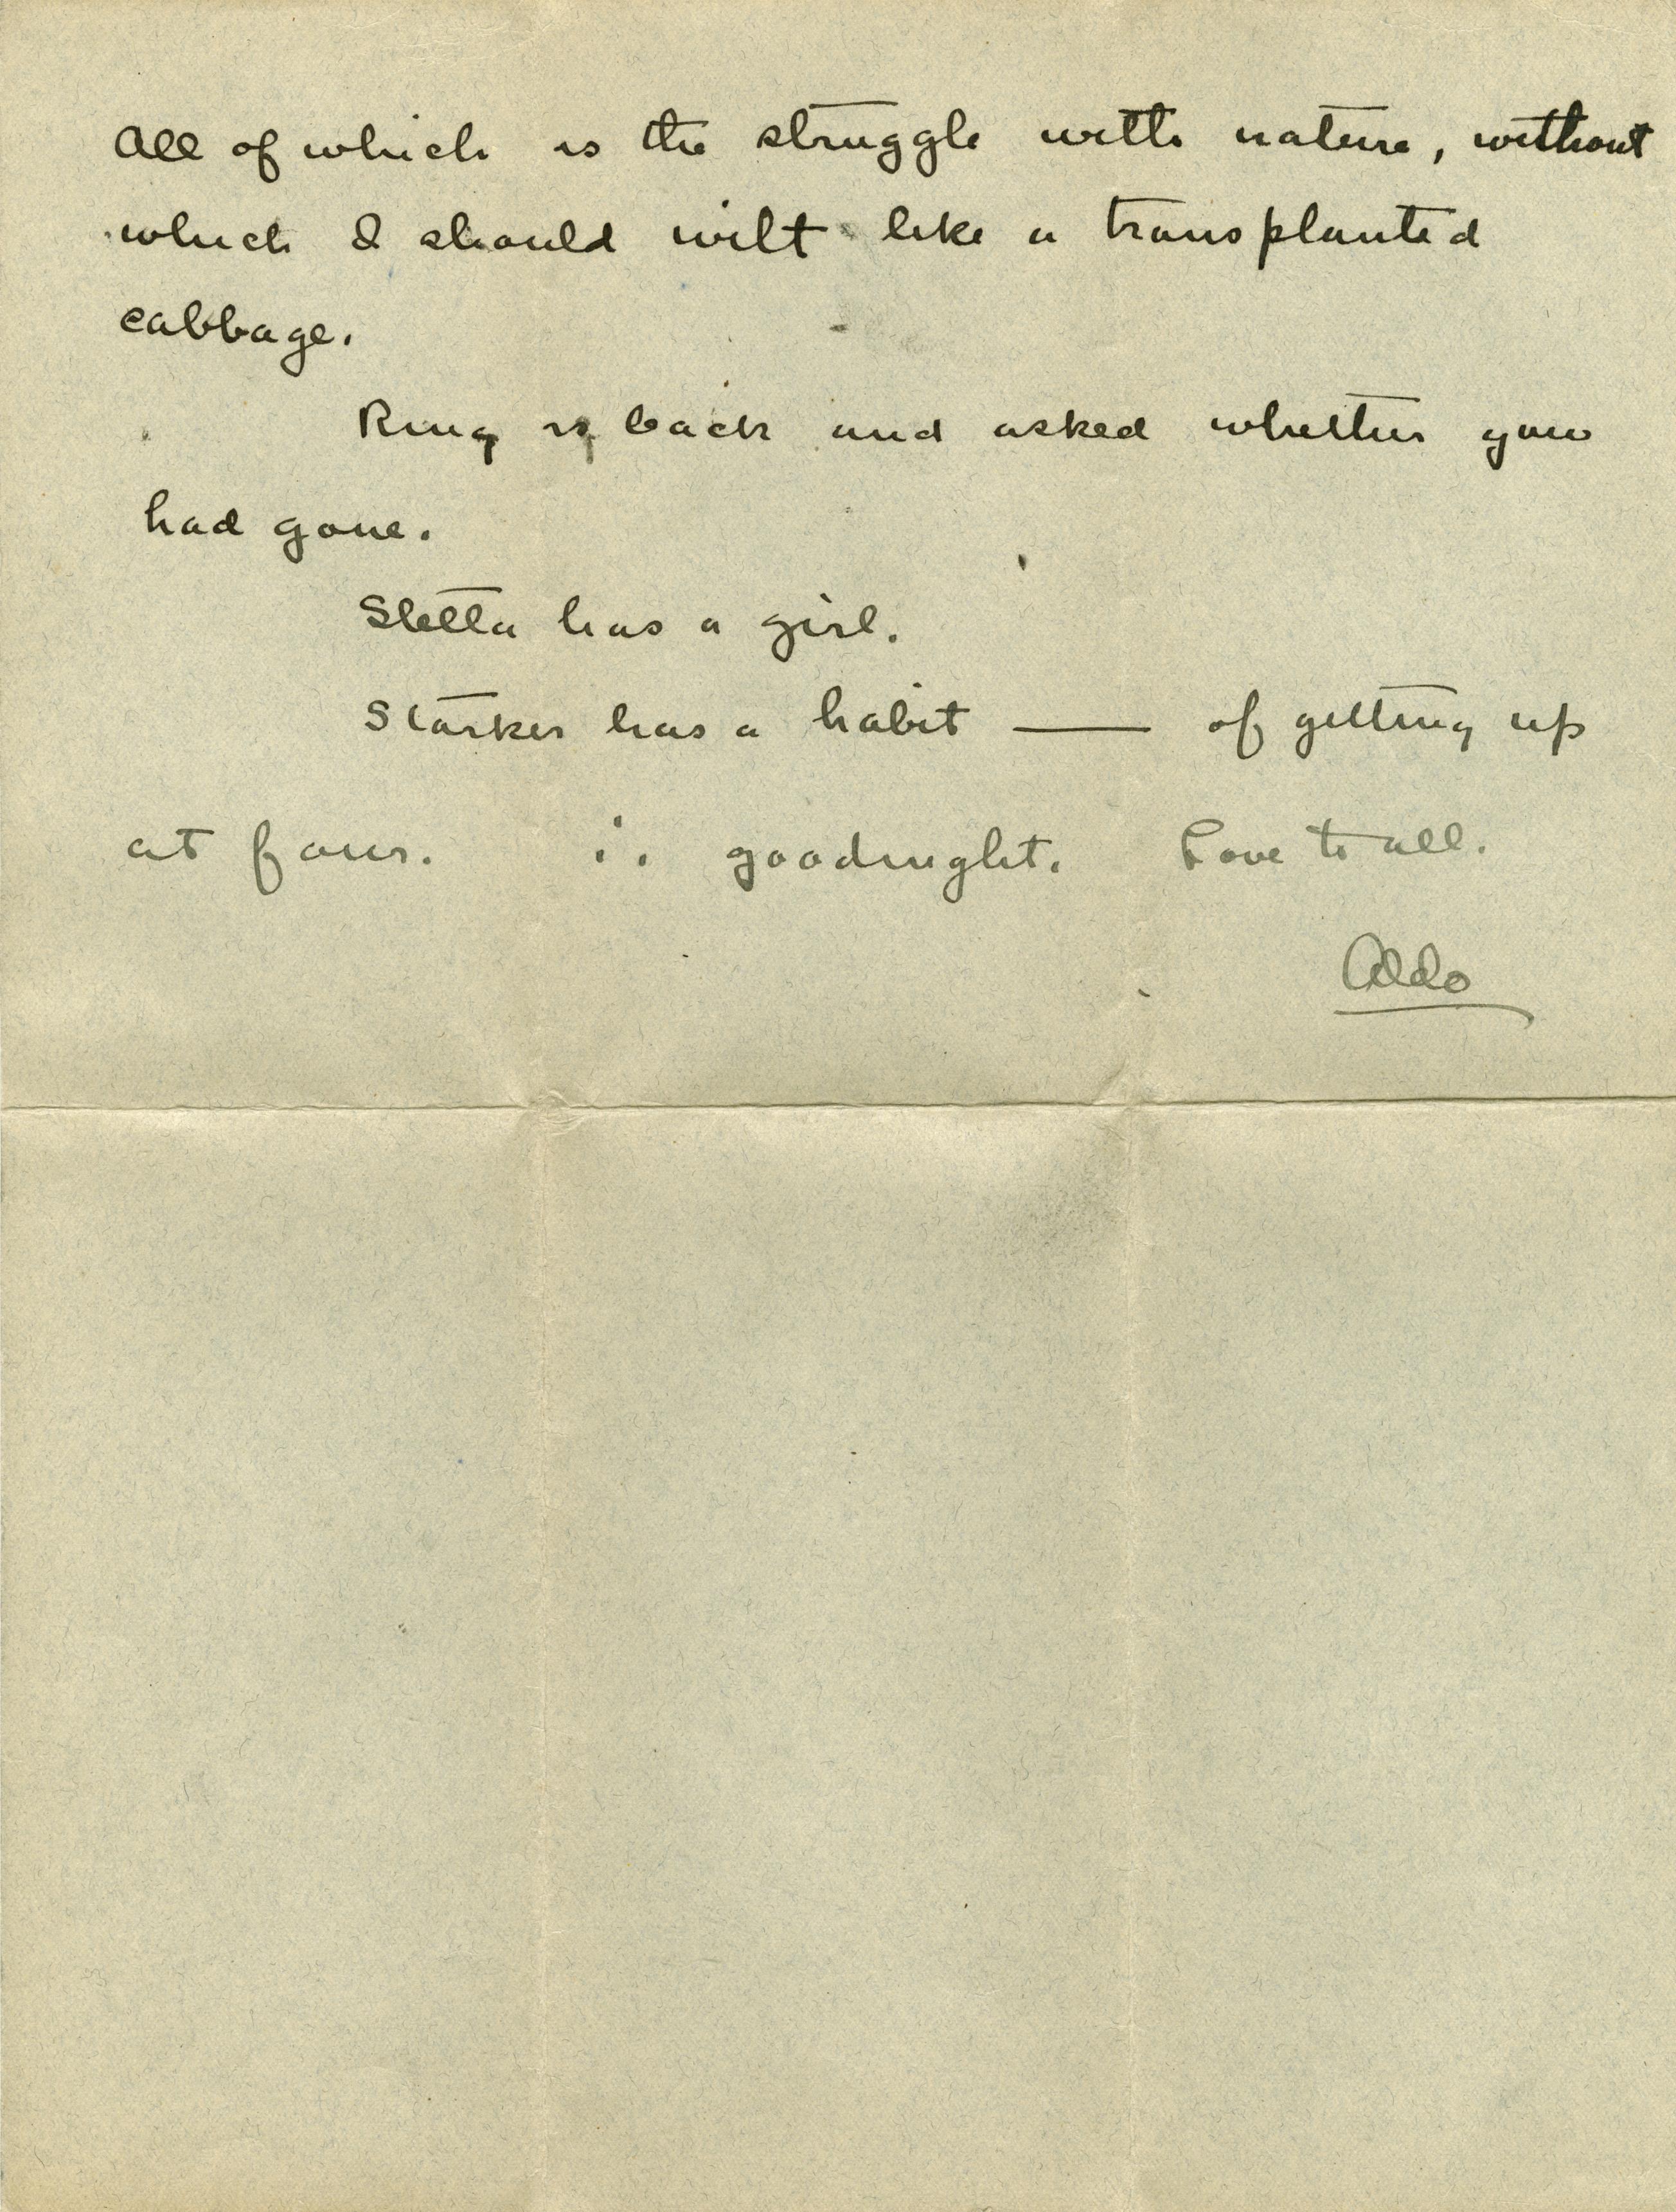 All of which is the struggle with nature, without
which I should wilt like a transplanted
cabbage.
Ring is back and asked whether you
had gone.
Stella has a girl.
Starker has a habit — of getting up
at four. ∴ goodnight. Love to all.
Aldo